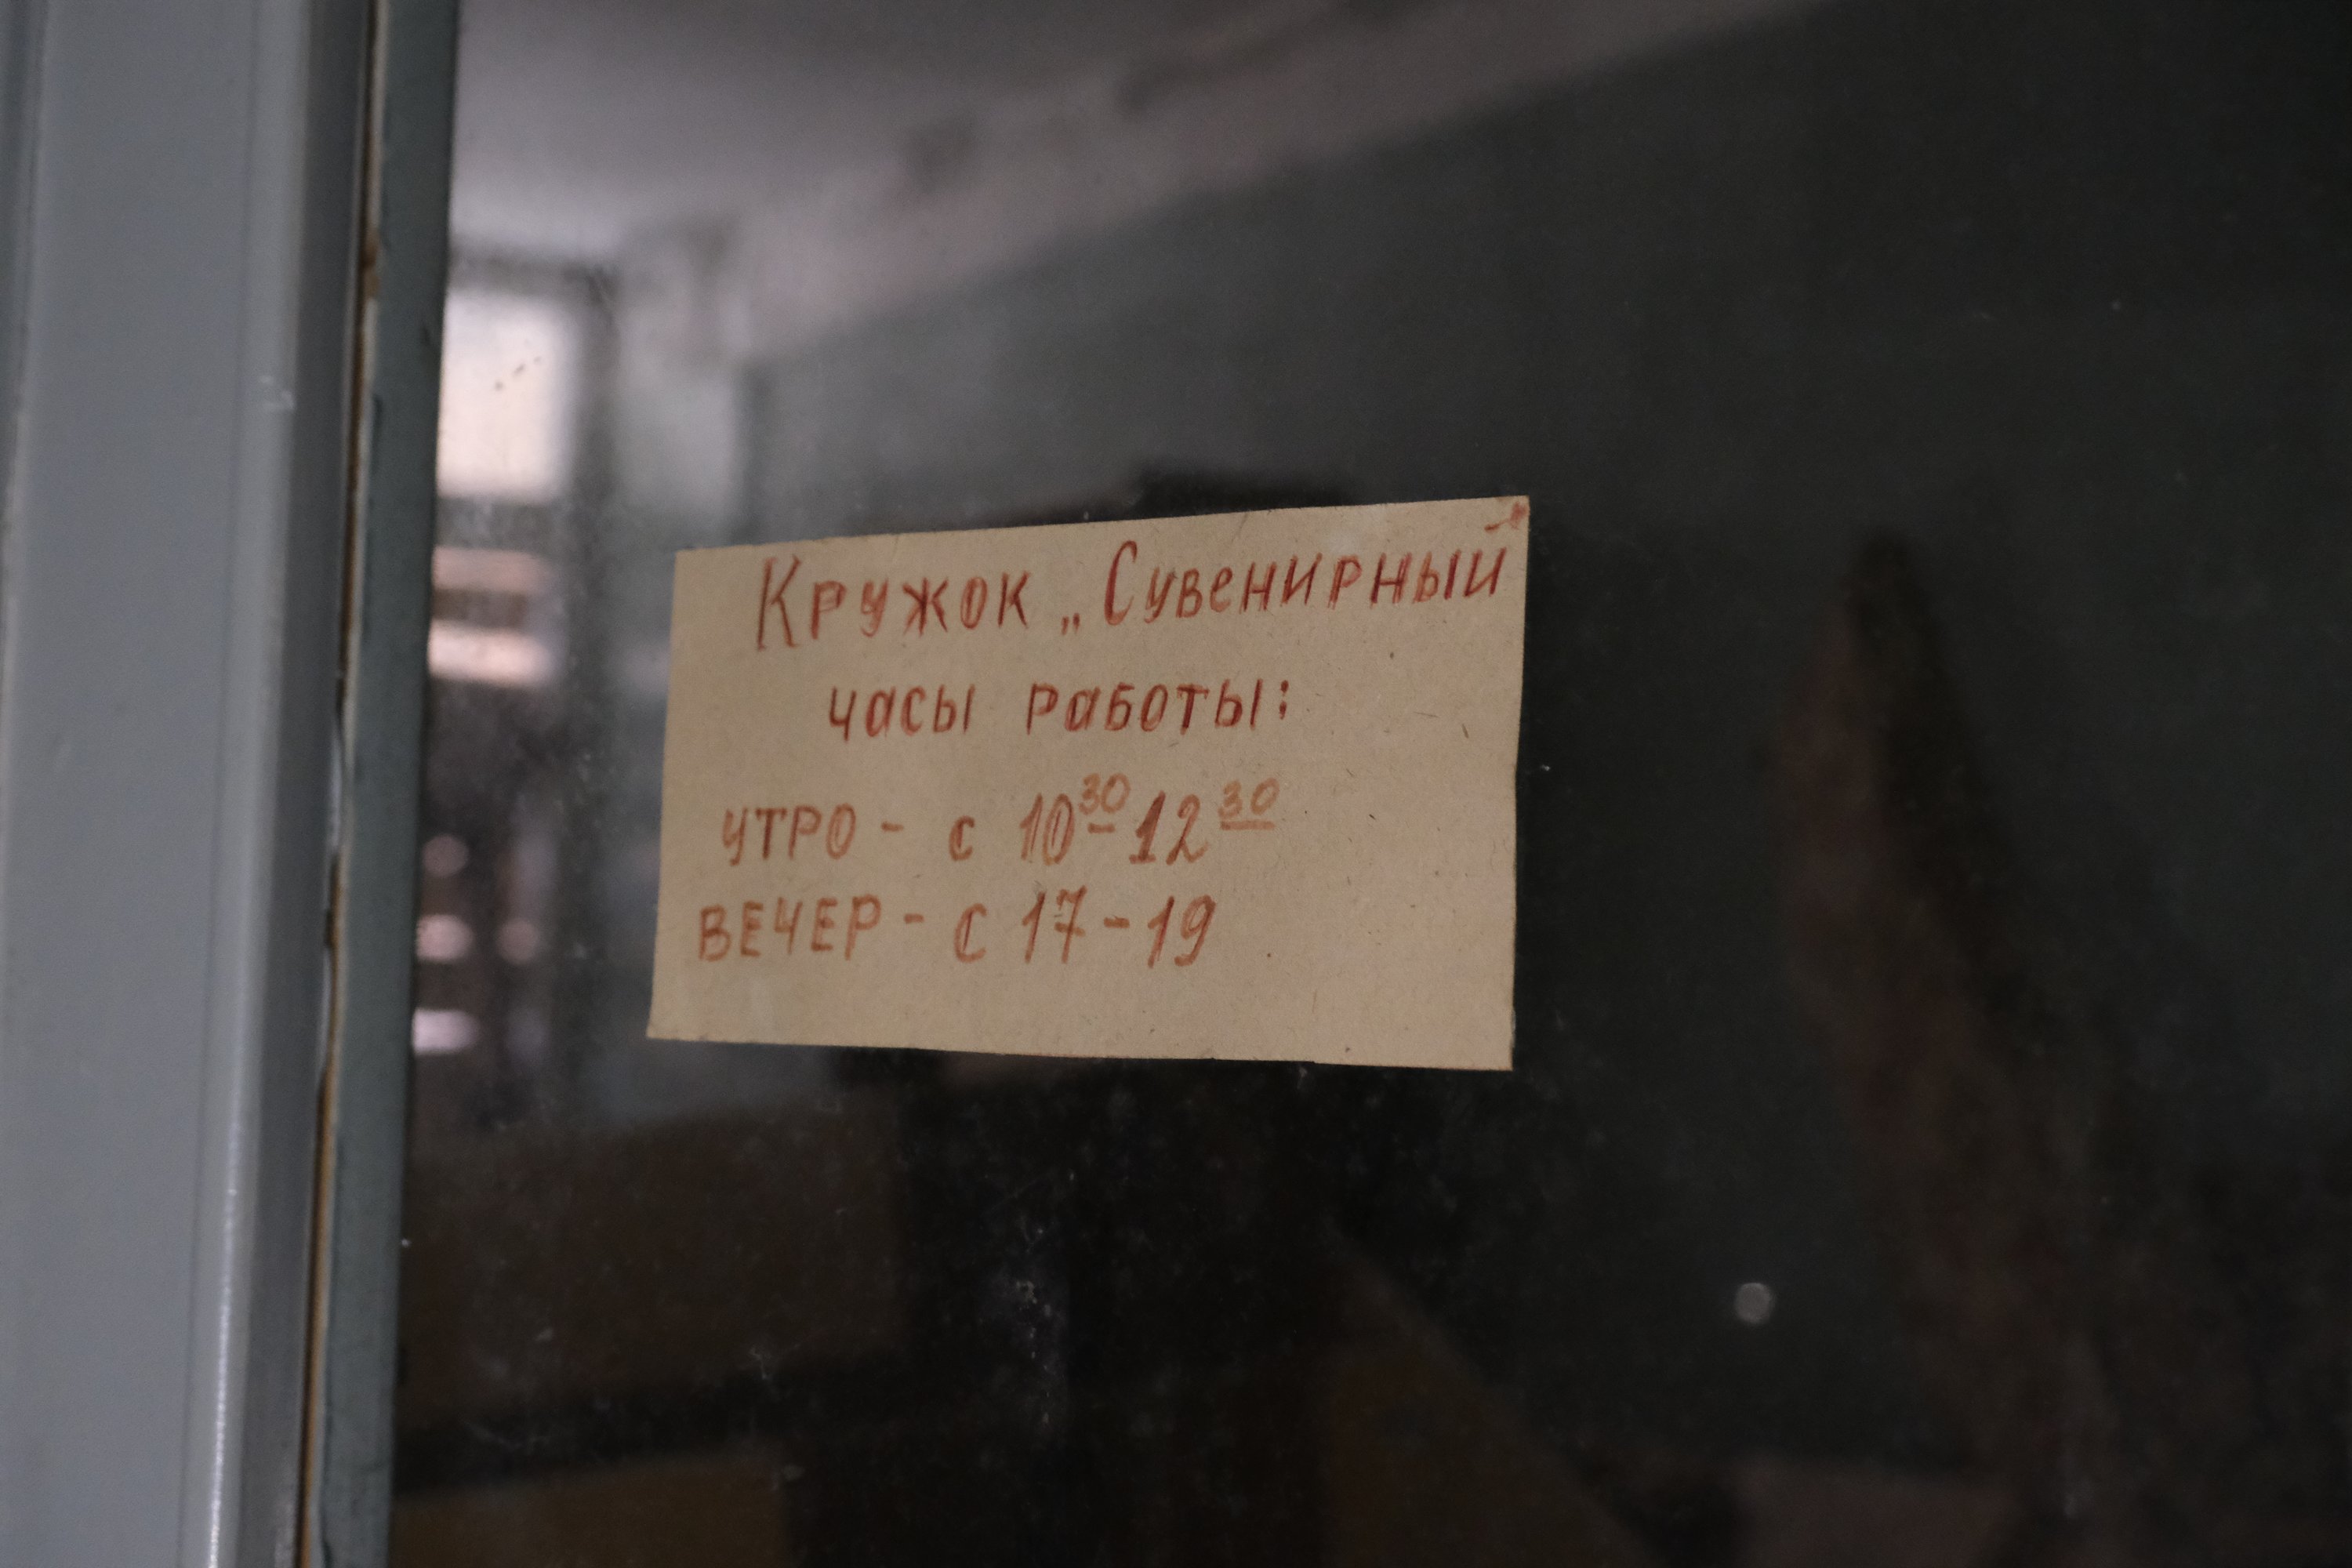 Кружок „Сувенирный
часы работы:
УТРО - с 10³⁰-12³⁰
ВЕЧЕР - с 17-19